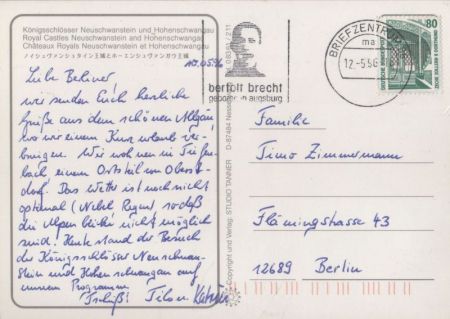 Königsschlösser Neuschwanstein und Hohenschwangau
Royal Castles Neuschwanstein and Hohenschwangau
Châteaux Royals Neuschwanstein et Hohenschwangau
ノイシュヴァンシュタイン王城とホーエンシュヴァンガウ王城
10.05.96
Liebe Berliner!
wir senden Euch herzliche
Grüße aus dem schönen Allgäu
wo wir einen Kurzurlaub ver-
bringen. Wir wohnen in Tiefen-
bach einem Ortsteil von Oberst-
dorf. Das Wetter ist noch nicht
optimal (Nebel Regen) so daß
die Alpen nicht möglich
sind! Heute stand der Besuch
der Königsschlösser Neuschwan-
stein und Hohenschwangau auf
unserem Programm.
Tschüß!
© Copyright und Verlag: STUDIO TANNER
bertolt brecht
geboren in augsburg
BRIEFZENTRUM
12.-5.96
80
DEUTSCHE BUNDESPOST
Familie
Timo Zimmermann
Flämingstrasse 43
12689 Berlin